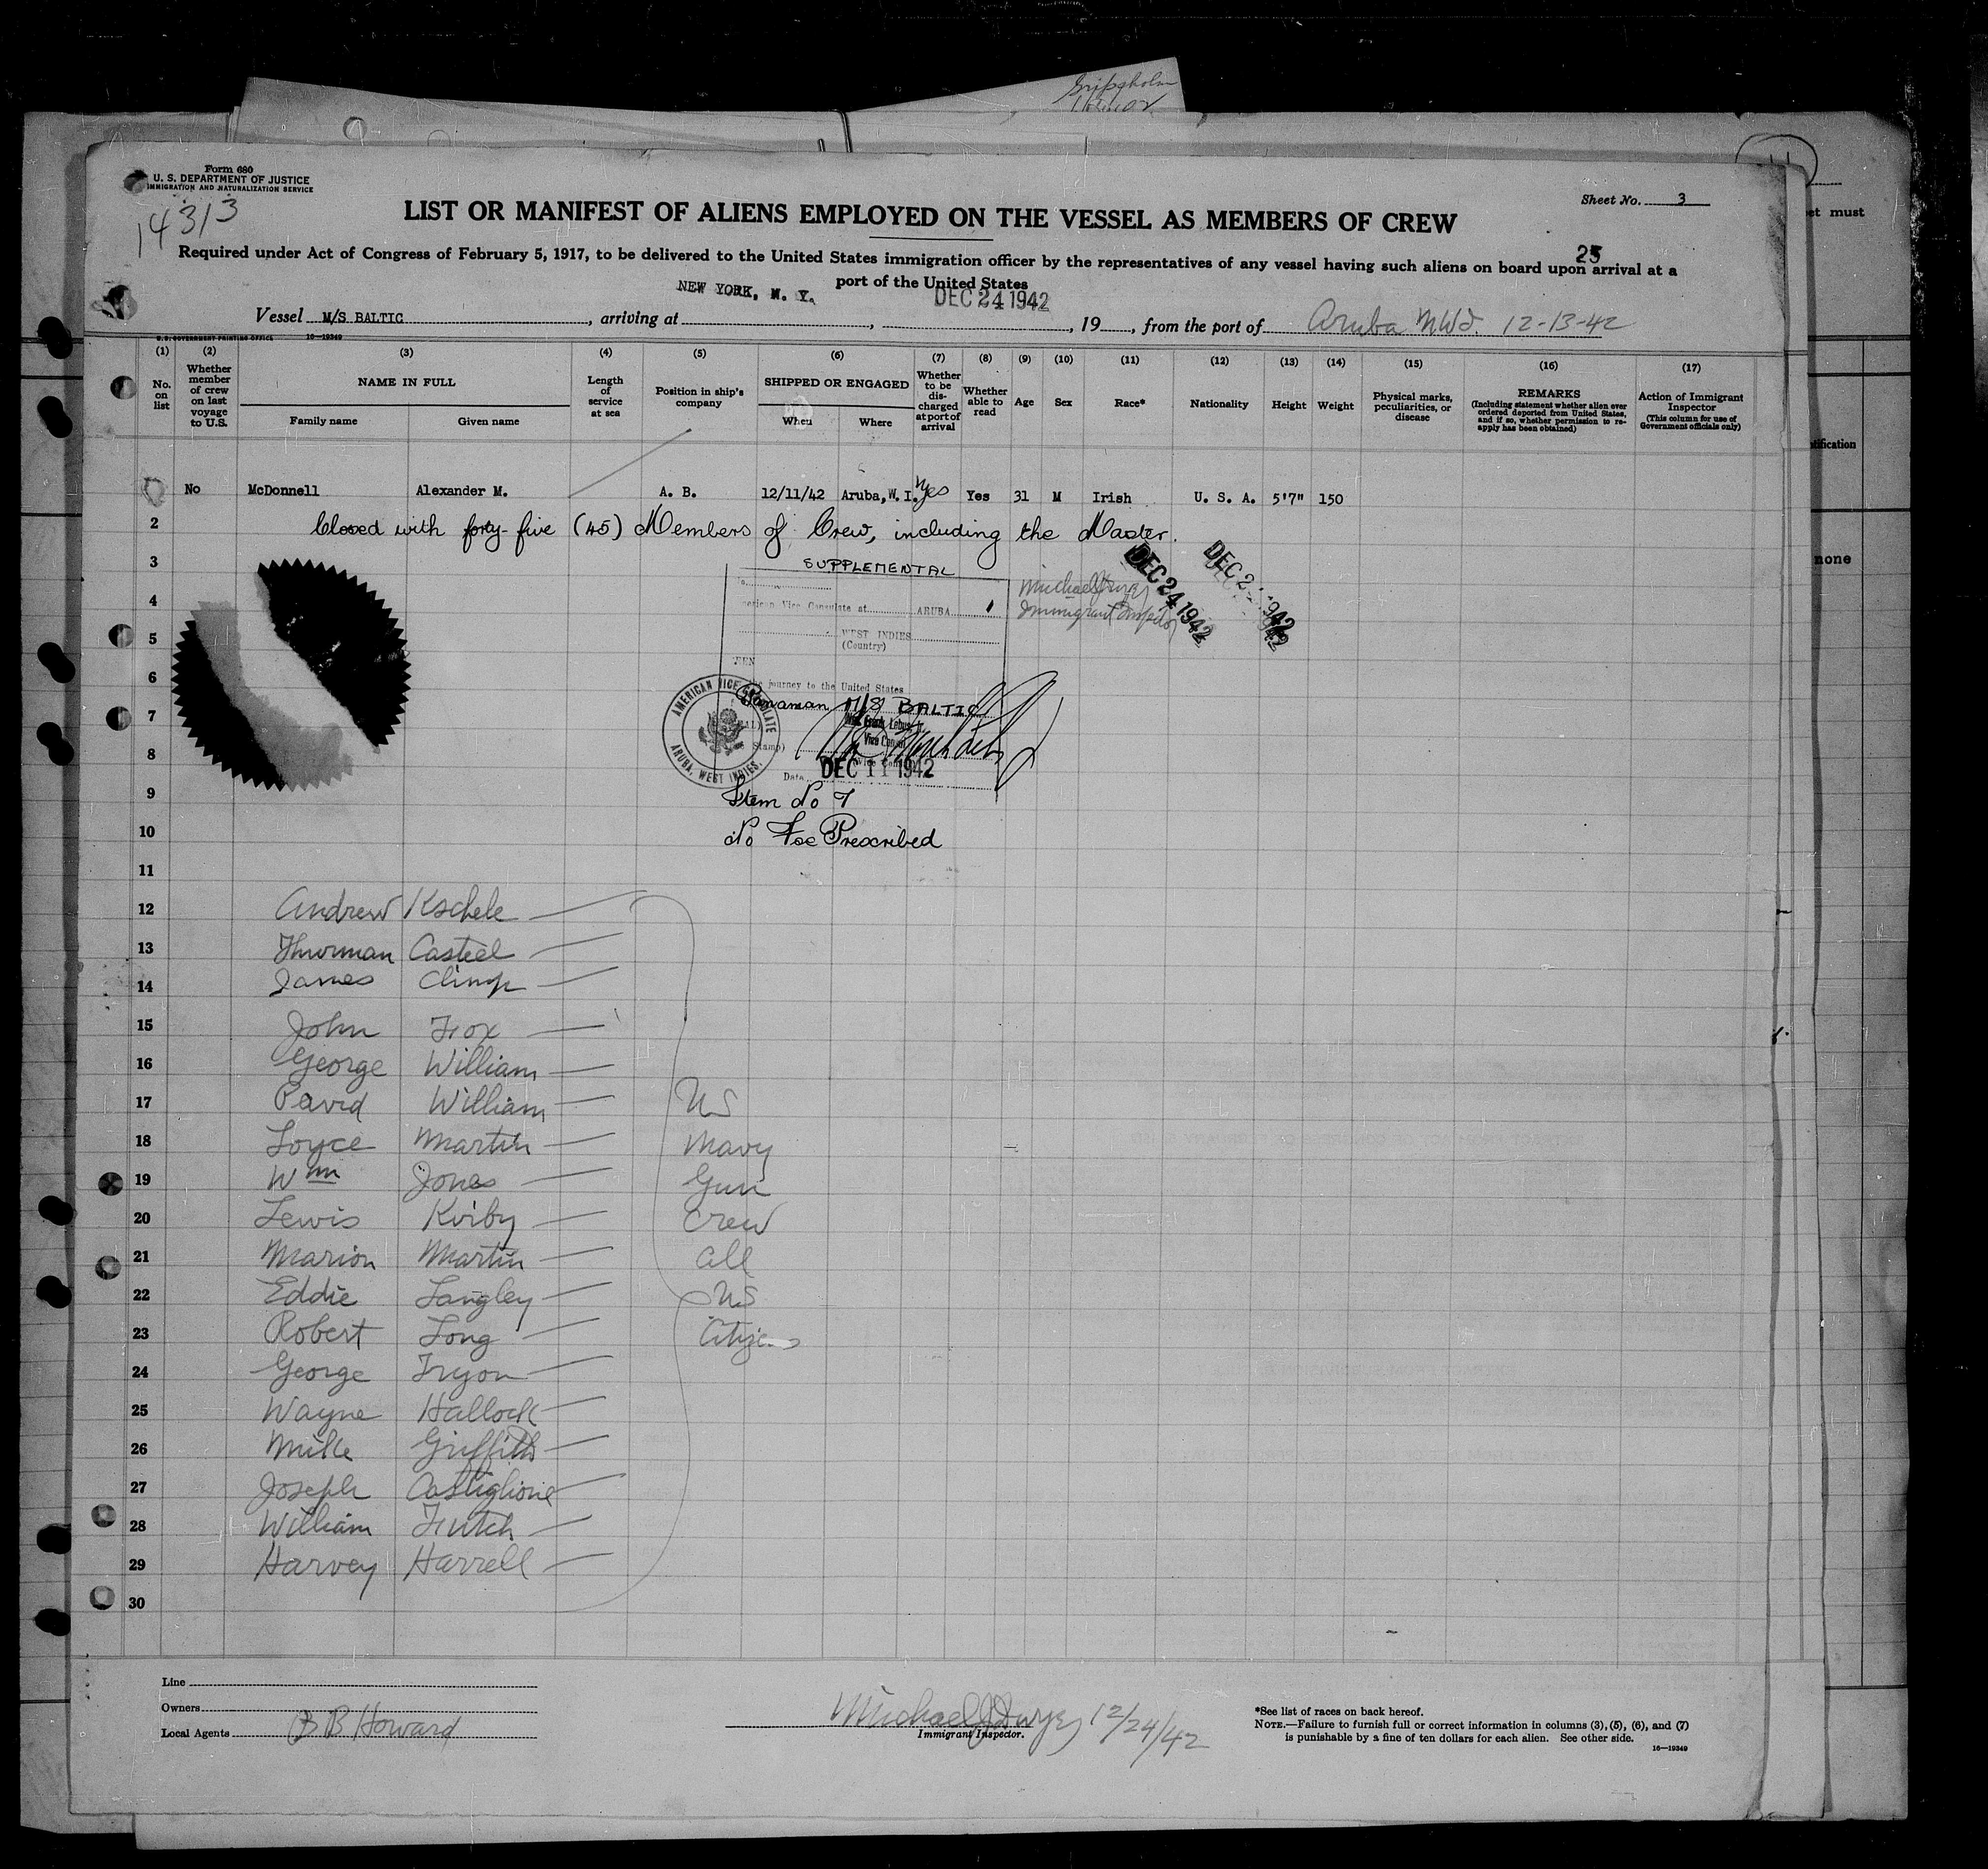 Gripsholm
Form 680
U. S. DEPARTMENT OF JUSTICE
IMMIGRATION AND NATURALIZATION SERVICE
14313
Sheet No. 3
LIST OR MANIFEST OF ALIENS EMPLOYED ON THE VESSEL AS MEMBERS OF CREW
et must
25
Required under Act of Congress of February 5, 1917, to be delivered to the United States immigration officer by the representatives of any vessel having such aliens on board upon arrival at a
port of the United States
Vessel M/S BALTIC, arriving at NEW YORK, N. Y., DEC 24 1942, 19, from the port of Aruba NWI. 12-13-42
U.S. GOVERNMENT PRINTING OFFICE 16—19349
(1) (2) (3) (4) (5) (6) (7) (8) (9) (10) (11) (12) (13) (14) (15) (16) (17)
No. on list
Whether member of crew on last voyage to U.S.
NAME IN FULL
Family name Given name
Length of service at sea
Position in ship's company
SHIPPED OR ENGAGED
When Where
Whether to be discharged at port of arrival
Whether able to read
Age
Sex
Race*
Nationality
Height
Weight
Physical marks, peculiarities, or disease
REMARKS
(Including statement whether alien ever ordered deported from United States, and if so, whether permission to reapply has been obtained)
Action of Immigrant Inspector
(This column for use of Government officials only)
tification
No McDonnell Alexander M. A. B. 12/11/42 Aruba, W. I. Yes Yes 31 M Irish U. S. A. 5'7" 150
2 Closed with forty-five (45) Members of Crew, including the Master.
none
3 SUPPLEMENTAL
DEC 24 1942
4 American Vice Consulate at ARUBA
Immigrant Inspector
5 WEST INDIES
(Country)
6 journey to the United States
7 Panaman M/S BALTIC
AMERICAN VICE CONSULATE
ARUBA, WEST INDIES.
Vice Consul
8
Date DEC 11 1942
9 Item No 7
10 No Fee Prescribed
11
12 Andrew Kschele
13 Thurman Casteel
14 James
15 John Fox
16 George William
17 David William US
18 Loyce Martin Navy
19 Wm Jones Gun
20 Lewis Kirby Crew
21 Marion Martin all
22 Eddie Langley US
23 Robert Long Citizens
24 George Tryon
25 Wayne Hallock
26 Mike Griffith
27 Joseph Castiglione
28 William Futch
29 Harvey Harrell
30
Line
Owners
Local Agents B B Howard
Michael J Dwyer 12/24/42
Immigrant Inspector.
*See list of races on back hereof.
NOTE.—Failure to furnish full or correct information in columns (3), (5), (6), and (7)
is punishable by a fine of ten dollars for each alien. See other side.
16—19349